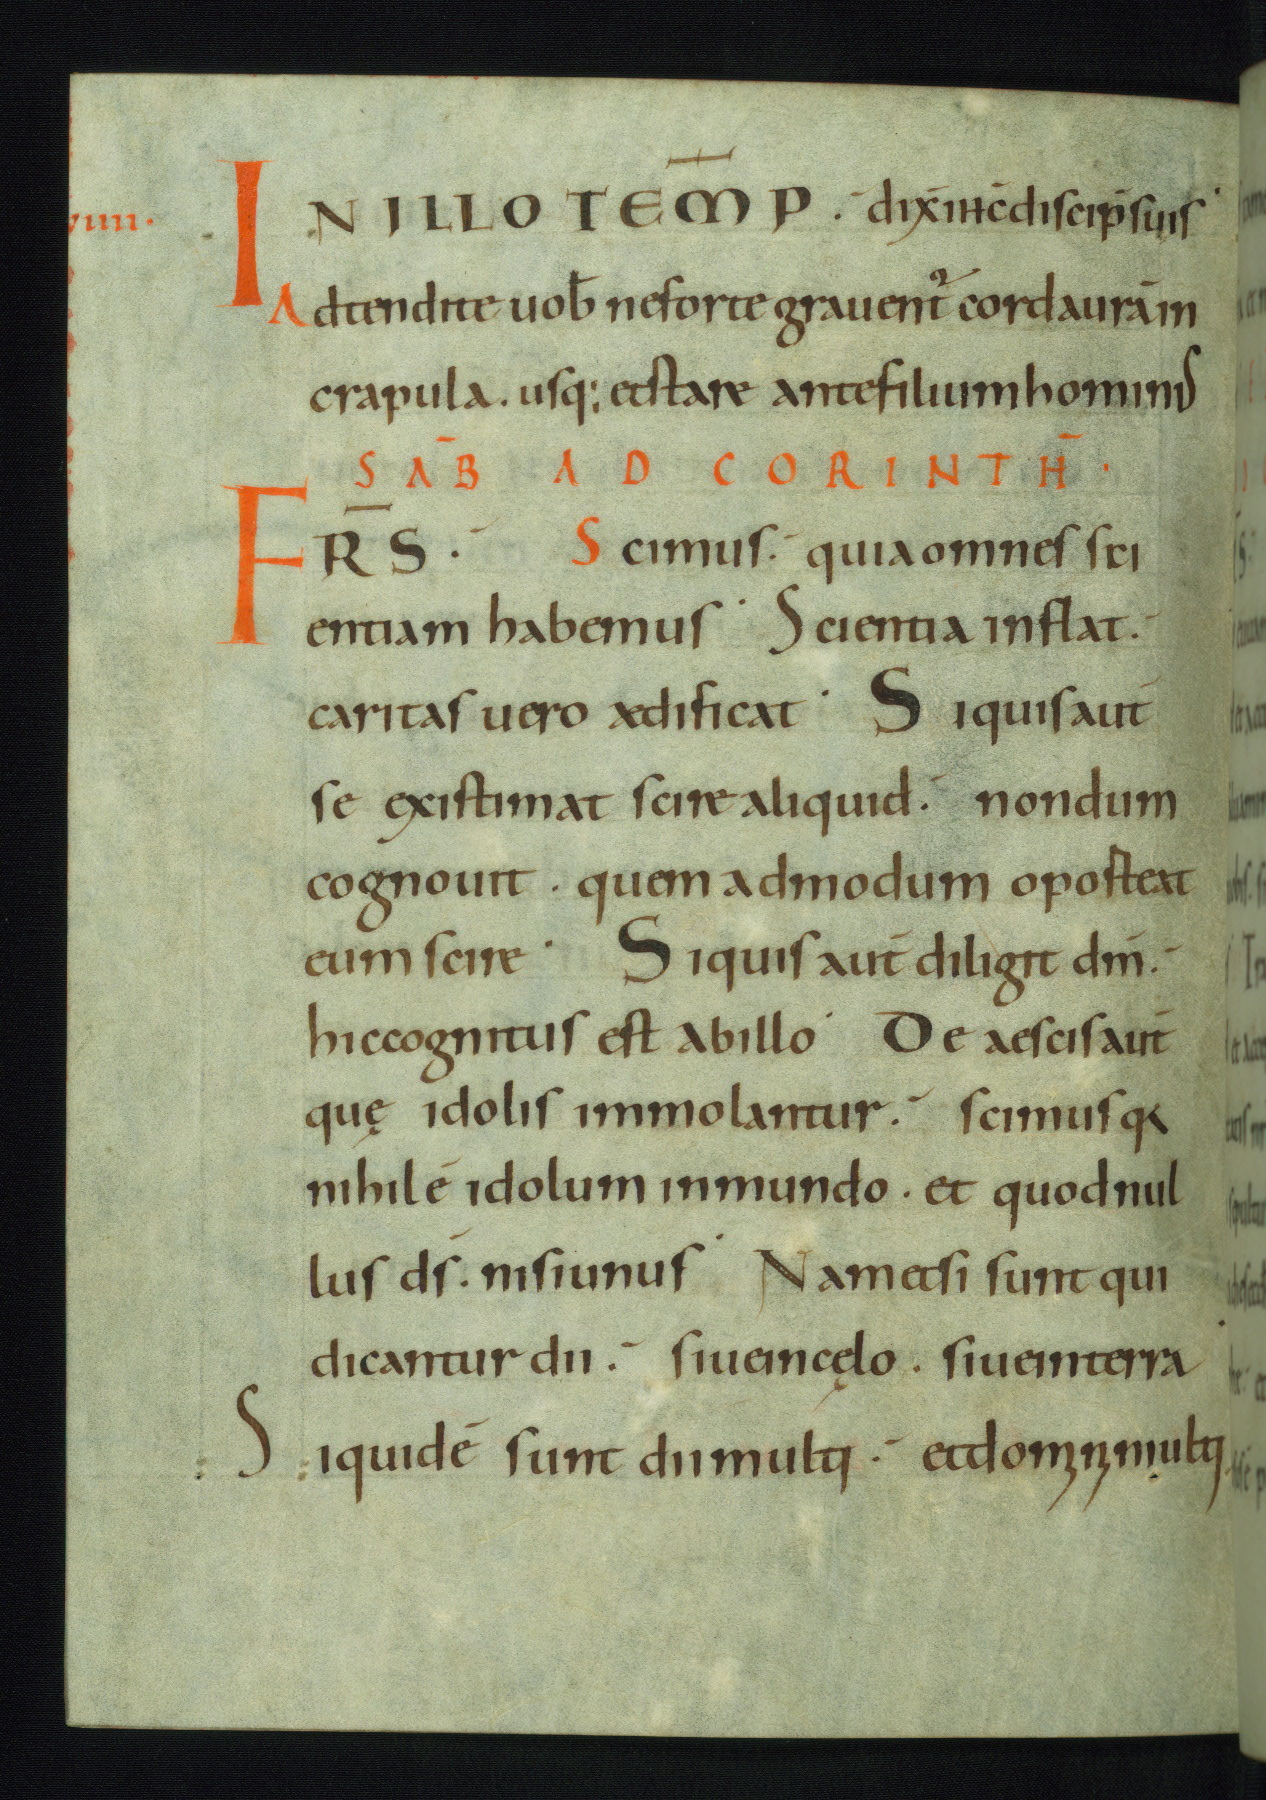 viiii.
IN ILLO TEM̄P. dix̄ ih̄c discip̄ suis
Adtendite uob̄ ne forte grauent᷒ corda ur̄a in
crapula. usq; et stare ante filium hominis
SAB̄ AD CORINTH̄.
FR̄S. Scimus. quia omnes sci
entiam habemus. Scientia inflat.
caritas uero aedificat. Si quis aut̄
se existimat scire aliquid. nondum
cognouit. quem admodum oporteat
eum scire. Si quis aut̄ diligit dm̄.
hic cognitus est ab illo. De aescis aut̄
quę idolis immolantur. scimus qa
nihil ē idolum in mundo. et quod nul
lus ds̄. nisi unus. Nam etsi sunt qui
dicantur dii. siue in cęlo. siue in terra
Siquidē sunt dii multi. et domini multi.